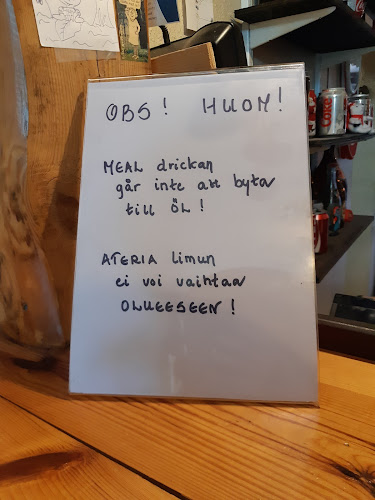 OBS! HUOM!
MEAL drickan
går inte att byta
till ÖL!
ATERIA limun
ei voi vaihtaa
OLUEESEEN!